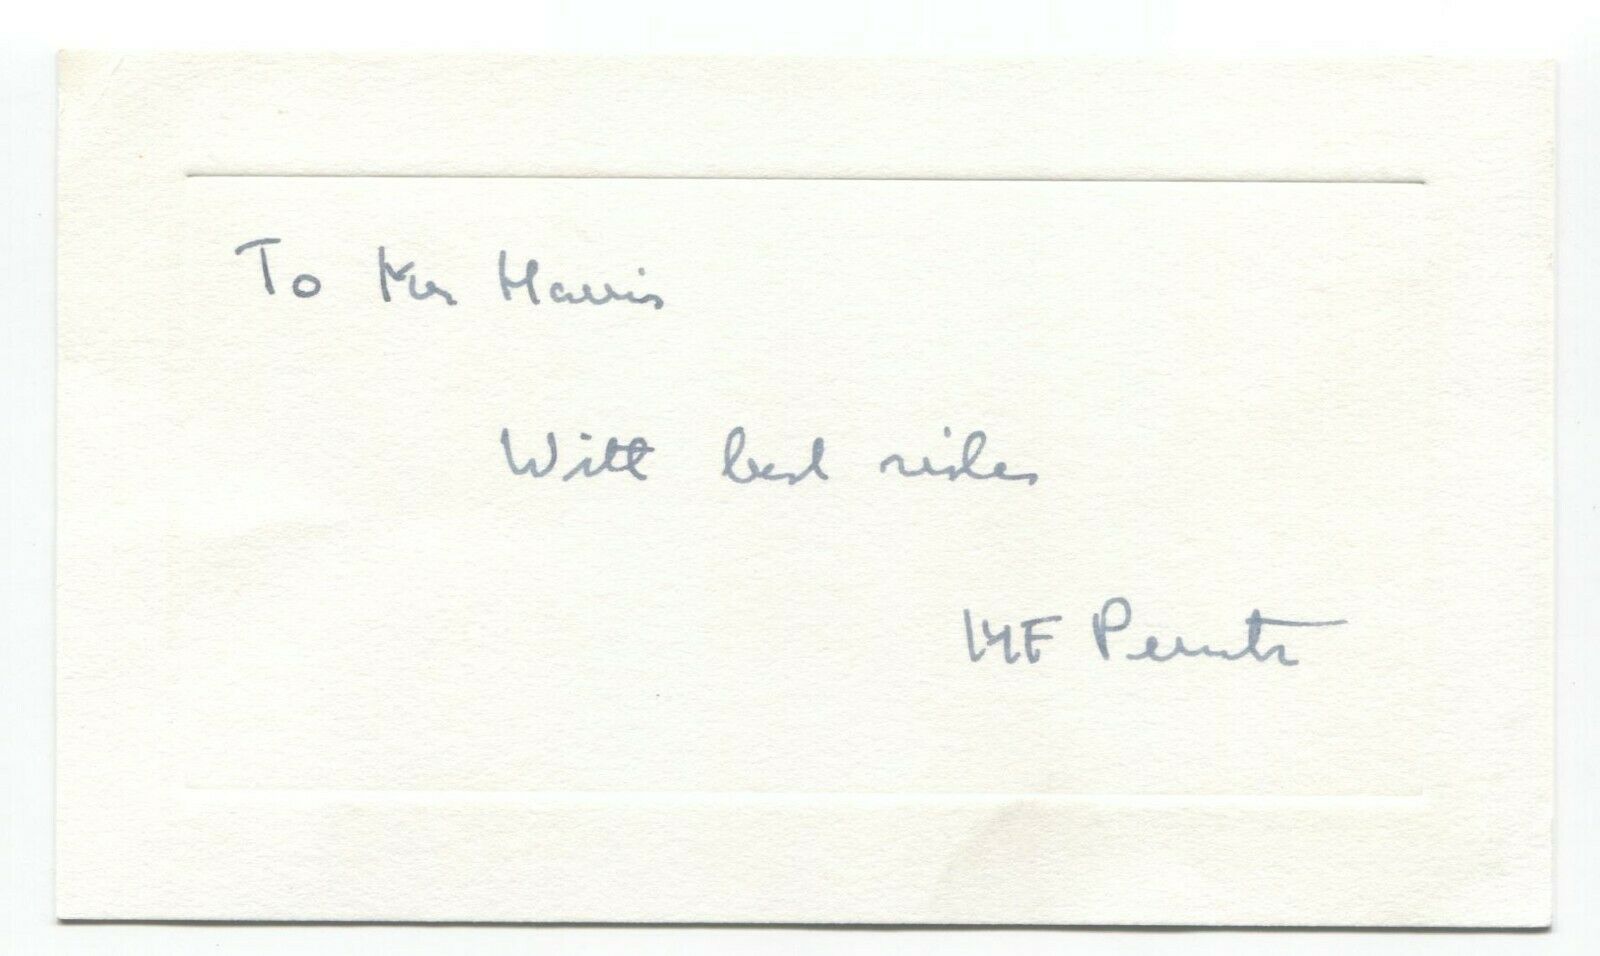 To Mrs Harris
With best wishes
MF Perutz